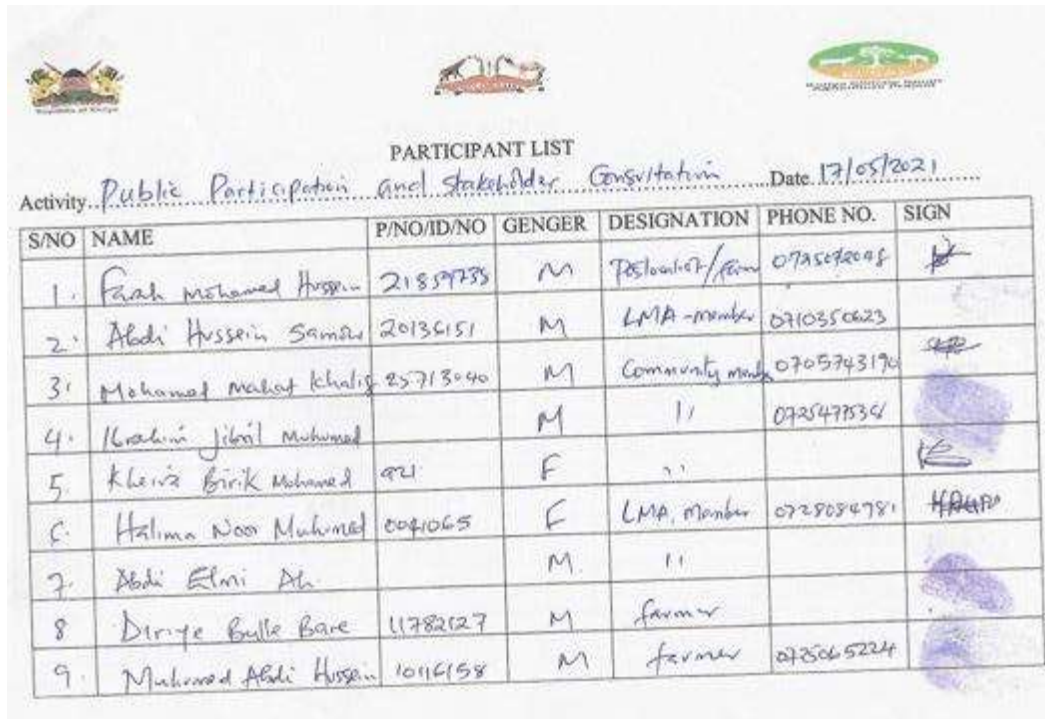 PARTICIPANT LIST
Activity.. Public Participation and Stakeholder Consultation ....Date 17/05/2021
S/NO NAME P/NO/ID/NO GENGER DESIGNATION PHONE NO. SIGN
1. Farah Mohamed Hussein 21859735 M
2. Abdi Hussein 20136151 M LMA-member 0710350623
3. Mohamed Mahat Khalif 25713040 M Community 0705743190
4. Ibrahim Jibril Muhumed M 11
5. Birik Mohamed F 11
6. Halima Noor Muhumed 0041065 F LMA, Member 0728084981
7. Abdi Elmi M. 11
8 Diriye Bulle Bare 11782127 M farmer
9. Muhumed Abdi Hussein 10116158 M farmer 0725065224